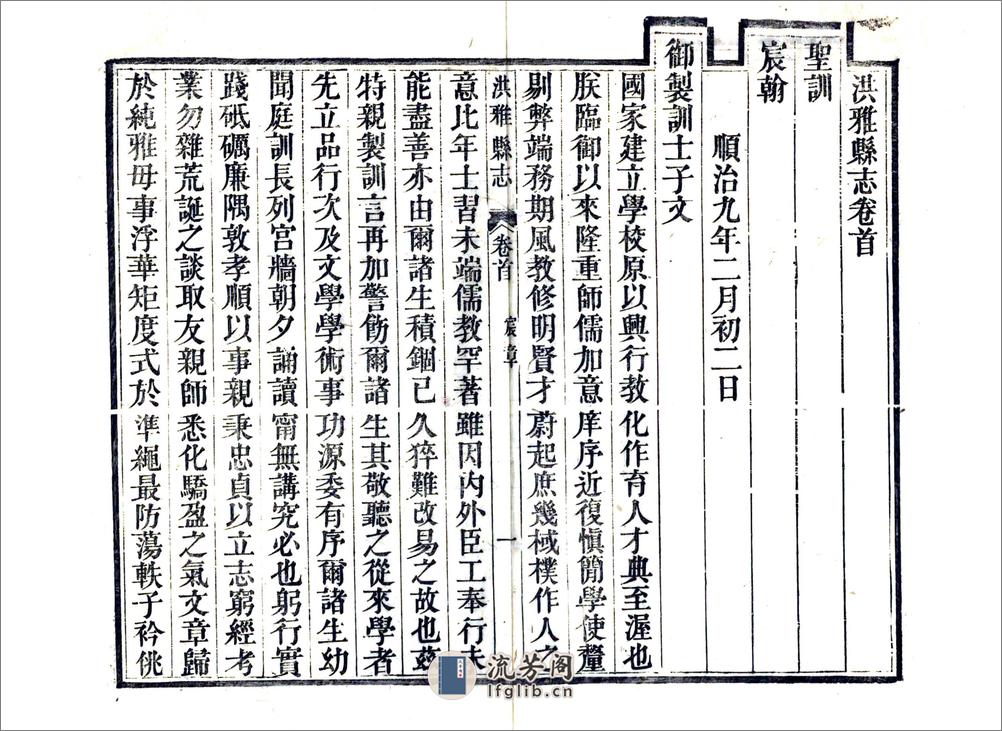 洪雅縣志卷首
聖訓
宸翰
順治九年二月初二日
御製訓士子文
國家建立學校原以興行教化作育人才典至渥也
朕臨御以來隆重師儒加意庠序近復慎簡學使釐
剔弊端務期風教修明賢才蔚起庶幾棫樸作人之
洪雅縣志 卷首 宸章 一
意比年士習未端儒教罕著雖因内外臣工奉行未
能盡善亦由爾諸生積錮已久猝難改易之故也茲
特親製訓言再加警飭爾諸生其敬聽之從來學者
先立品行次及文學學術事功源委有序爾諸生幼
聞庭訓長列宫牆朝夕誦讀甯無講究必也躬行實
踐砥礪廉隅敦孝順以事親秉忠貞以立志窮經考
業勿雜荒誕之談取友親師悉化驕盈之氣文章歸
於純雅毋事浮華矩度式於準繩最防蕩軼子衿佻
流芳阁
lfglib.cn